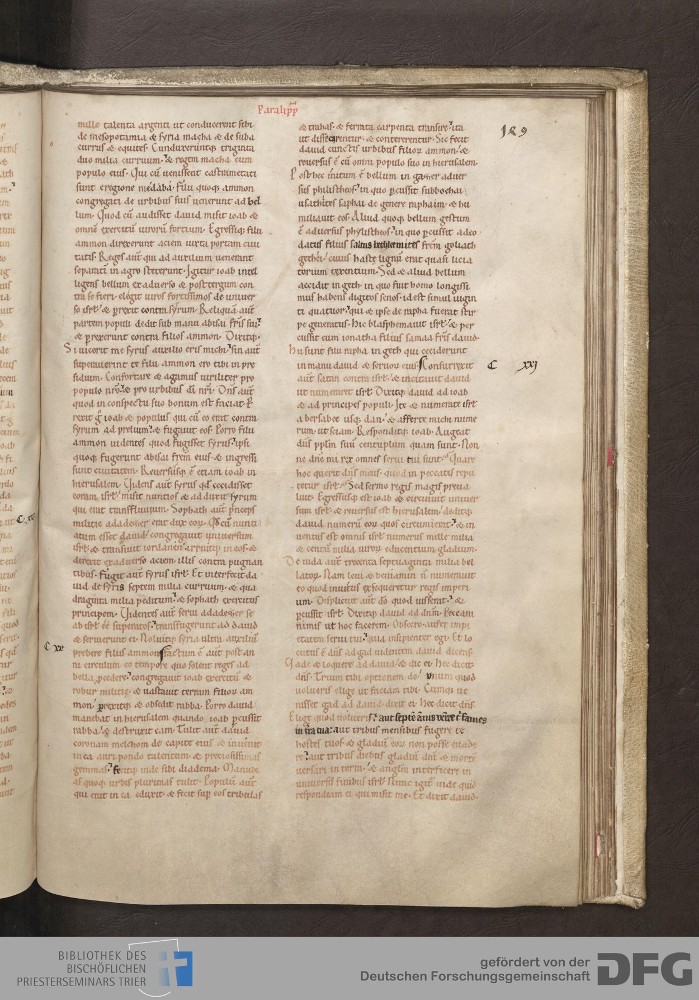 Paralipp
189
mille talenta argenti ut conducerent sibi
de mesopotamia & syria macha & de suba
currus & equites. Conduxeruntq; triginta
duo milia curruum. & regem macha cum
populo eius. Qui cu uenissent castrametati
sunt eregione medaba. Filii quoq; ammon
congregati de urbibus suis uenerunt ad bel
lum. Quod cu audisset dauid misit ioab &
omne exercitu uiroru fortium. Egressiq; filii
ammon direxerunt aciem iuxta portam ciui
tatis. Reges aut qui ad auxilium uenerant
separati in agro steterunt. Igitur ioab intel
ligens bellum ex aduerso & post tergum con
tra se fieri. elegit uiros fortissimos de uniuer
so isrl. & prexit contra syrum. Reliqua aut
partem populi dedit sub manu abisai fris sui.
& prexerunt contra filios ammon. Dixitq;
Si uicerit me syrus auxilio eris michi. sin aut
supauerint te filii ammon ero tibi in pre
sidium. Confortare & agamus uiriliter pro
populo nro. & pro urbibus di nri. Dns aut
quod in conspectu suo bonum est faciat. P
rexit g ioab & populus qui cu eo erat contra
syrum ad prelium. & fugauit eos. Porro filii
ammon uidentes quod fugisset syrus. ipsi
quoq; fugerunt abisai frem eius & ingressi
sunt ciuitatem. Reuersusq; e etiam ioab in
hierusalem. Videns aut syrus qd cecidisset
coram isrl. misit nuntios & adduxit syrum
qui erat transfluuium. Sophath aut princeps
militie adadezer erat dux eoru. Qd cu nunti
atum esset dauid congregauit uniuersum
isrl. & transiuit iordanen. irruitq; in eos &
direxit ex aduerso aciem illis contra pugnan
tibus. Fugit aut syrus isrl. Et interfecit da
uid de syris septem milia curruum. & qua
draginta milia peditum. & sophath exercitus
principem. Videntes aut serui adadezer se
ab isrl ee supatos. transfugerunt ad dauid
& seruierunt ei. Noluitq; syria ultra auxiliu
prebere filiis ammon. Factum e aut post an
C xx
ni circulum eo tempore quo solent reges ad
bella pcedere. congregauit ioab exercitu &
robur militie. & uastauit terram filioru am
mon. prexitq; & obsedit rabba. Porro dauid
manebat in hierusalem quando ioab pcussit
rabba. & destruxit eam. Tulit aut dauid
coronam melchom de capite eius & inuenit
in ea auri pondo talentum. & preciosissimas
gemmas. fecitq; inde sibi diadema. Manubi
as quoq; urbis plurimas tulit. Populu aut
qui erat in ea eduxit. & fecit sup eos tribulas
& trahas. & ferrata carpenta transire. ita
ut dissecarentur. & contererentur. Sic fecit
dauid cunctis urbibus filioru ammon. &
reuersus e cu omni populo suo in hierusalem.
Post hec initum e bellum in gazer aduer
sus philistheos. in quo pcussit sobbochai
usathites saphai de genere raphaim. & hu
miliauit eos. Aliud quoq; bellum gestum
e aduersus phylistheos. in quo pcussit adeo
datus filius saltus bethleemites frem goliath
gethei. cuius haste lignu erat quasi licia
torium texentium. Sed & aliud bellum
accidit in geth in quo fuit homo longissi
mus habens digitos senos. id est simul uigin
ti quattuor. qui & ipse de rapha fuerat stir
pe generatus. Hic blasphemauit isrl. & per
cussit eum ionatha filius samaa fris dauid.
Hii sunt filii rapha in geth qui ceciderunt
in manu dauid & seruoru eius. Consurrexit
C XXI
aut satan contra isrl. & incitauit dauid
ut numeraret isrl. Dixitq; dauid ad ioab
& ad principes populi. Ite & numerate isrl
a bersabee usq; dan. & afferte michi nume
rum ut sciam. Responditq; ioab. Augeat
dns pplm suu centuplum quam sunt. Non
ne dne mi rex omnes serui tui sunt. Quare
hoc querit dns meus. quod in peccatu repu
tetur isrl. Sed sermo regis magis preua
luit. Egressusq; est ioab & circuiuit uniuer
sum isrl. & reuersus est hierusalem. deditq;
dauid numeru eoru quos circumierat. & in
uentus est omnis isrl numerus mille milia
& centu milia uiroru educentium gladium.
De iuda aut trecenta septuaginta milia bel
latoru. Nam leui & beniamin n numerauit
eo quod inuitus exsequeretur regis imperi
um. Displicuit aut do quod iussum erat. &
pcussit isrl. Dixitq; dauid ad dnm. Peccaui
nimis ut hoc facerem. Obsecro aufer impi
etatem serui tui. quia insipienter egi. Et lo
cutus e dns ad gad uidentem dauid dicens.
Vade & loquere ad dauid & dic ei. Hec dicit
dns. Trium tibi optionem do. unum quod
uolueris elige ut faciam tibi. Cumq; ue
nisset gad ad dauid dixit ei. Hec dicit dns.
Elige quod uolueris. aut septe annis uenire t famen
in tra tua. aut tribus mensibus fugere te
hostes tuos & gladiu eoru non posse euade
re. aut tribus diebus gladiu dni & morte
uersari in terra. & anglm interficere in
uniuersis finibus isrl. Nunc igit uide quid
respondeam ei qui misit me. Et dixit dauid
BIBLIOTHEK DES
BISCHÖFLICHEN
PRIESTERSEMINARS TRIER
gefördert von der
Deutschen Forschungsgemeinschaft
DFG